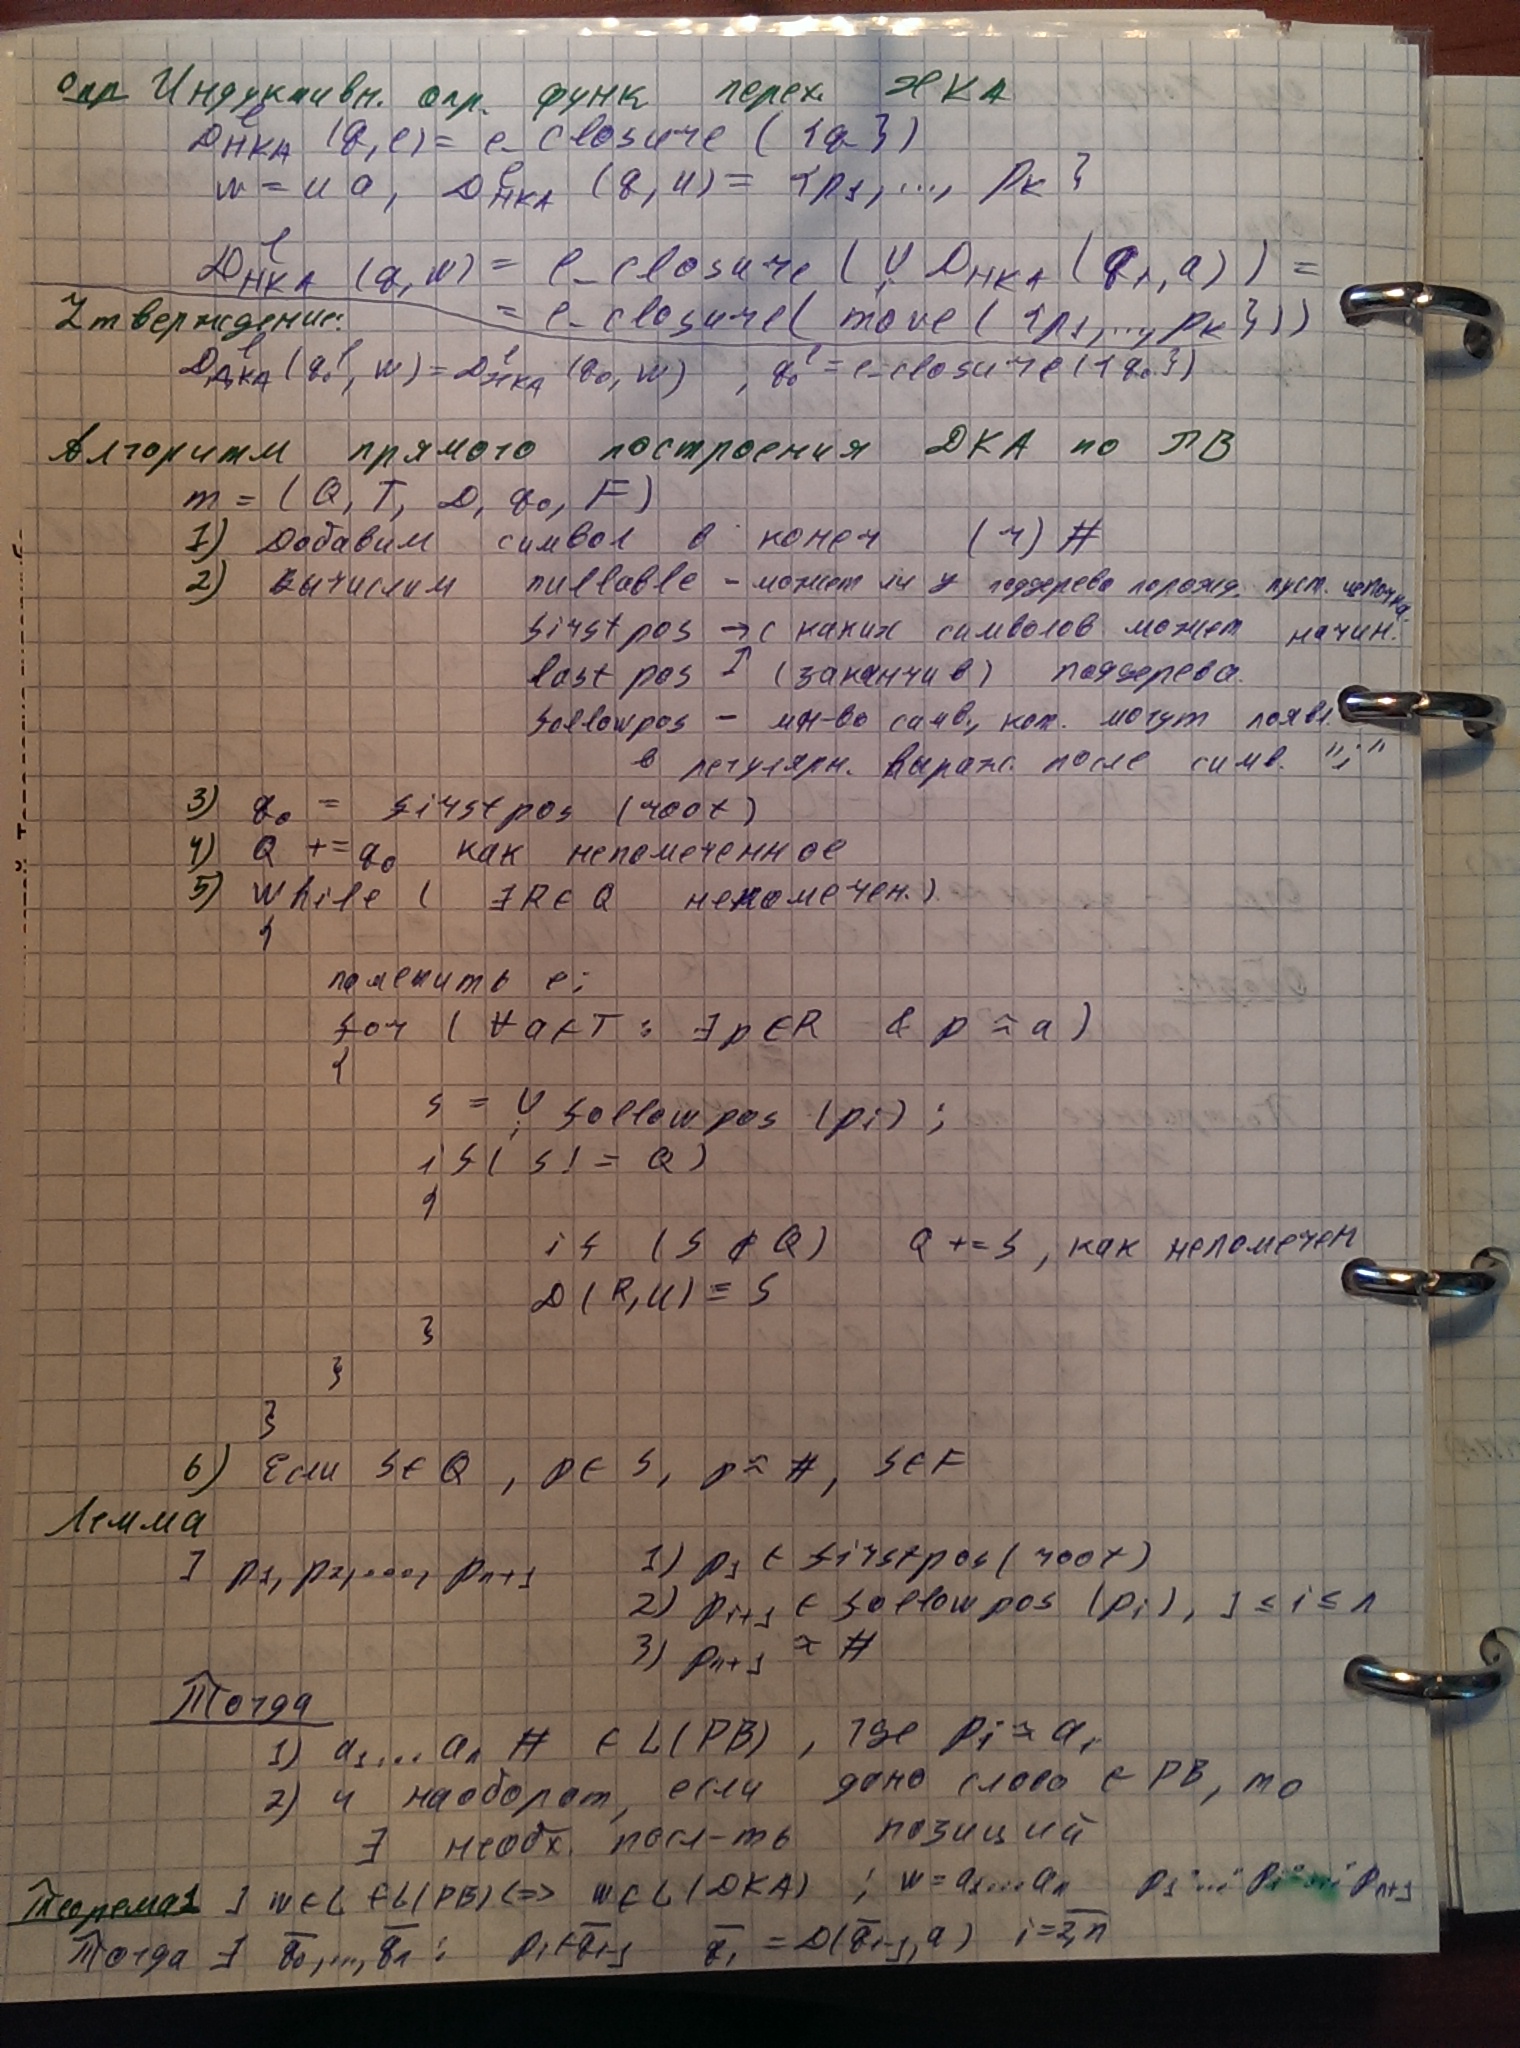 Опр Индуктивн. опр. функ перех. НКА
D^e_НКА (q, e) = e_closure ({q})
w = ua, D^e_НКА (q, u) = {p1, ..., pk}
D^e_НКА (q, w) = e_closure (∪i D_НКА (q1, a)) =
Утверждение: = e_closure( move ({p1, ..., pk}))
D^e_ДКА (q0^e, w) = D^e_НКА (q0, w) , q0^e = e_closure({q0})
Алгоритм прямого построения ДКА по РВ
m = (Q, T, D, q0, F)
1) Добавим символ в конец (r)#
2) Вычислим nullable - может ли у поддерева порожд. пуст. цепочка.
firstpos → с каких символов может начин.
lastpos ↑ (заканчив) поддерева.
followpos - мн-во симв., кот. могут появл.
в регулярн. выраж. после симв. "i"
3) q0 = firstpos (root)
4) Q += q0 как непомеченное
5) While ( ∃R∈Q непомечен.)
{
пометить e;
for ( ∀a∈T : ∃p∈R & p≈a )
{
s = ∪i followpos (pi) ;
if( s != Q)
{
if (S ∉ Q) Q += S , как непомечен
D(R,u) = S
}
}
}
6) Если S∈Q , p∈S, p≈#, S∈F
Лемма
] p1, p2, ...., pn+1 1) p1 ∈ firstpos(root)
2) pi+1 ∈ followpos (pi), 1 ≤ i ≤ n
3) pn+1 ≈ #
Тогда
1) a1 ... an # ∈ L(РВ) , где pi ≈ ai
2) и наоборот, если дано слово ∈ РВ, то
∃ необх. посл-ть позиций
Теорема1 ] w∈L ∈L(РВ) <=> w∈L(ДКА) ; w = a1...an p1 ... pi ... pn+1
Тогда ∃ q̄0, ..., q̄n : pi∈q̄i-1 q̄i = D(q̄i-1, a) i=2,n